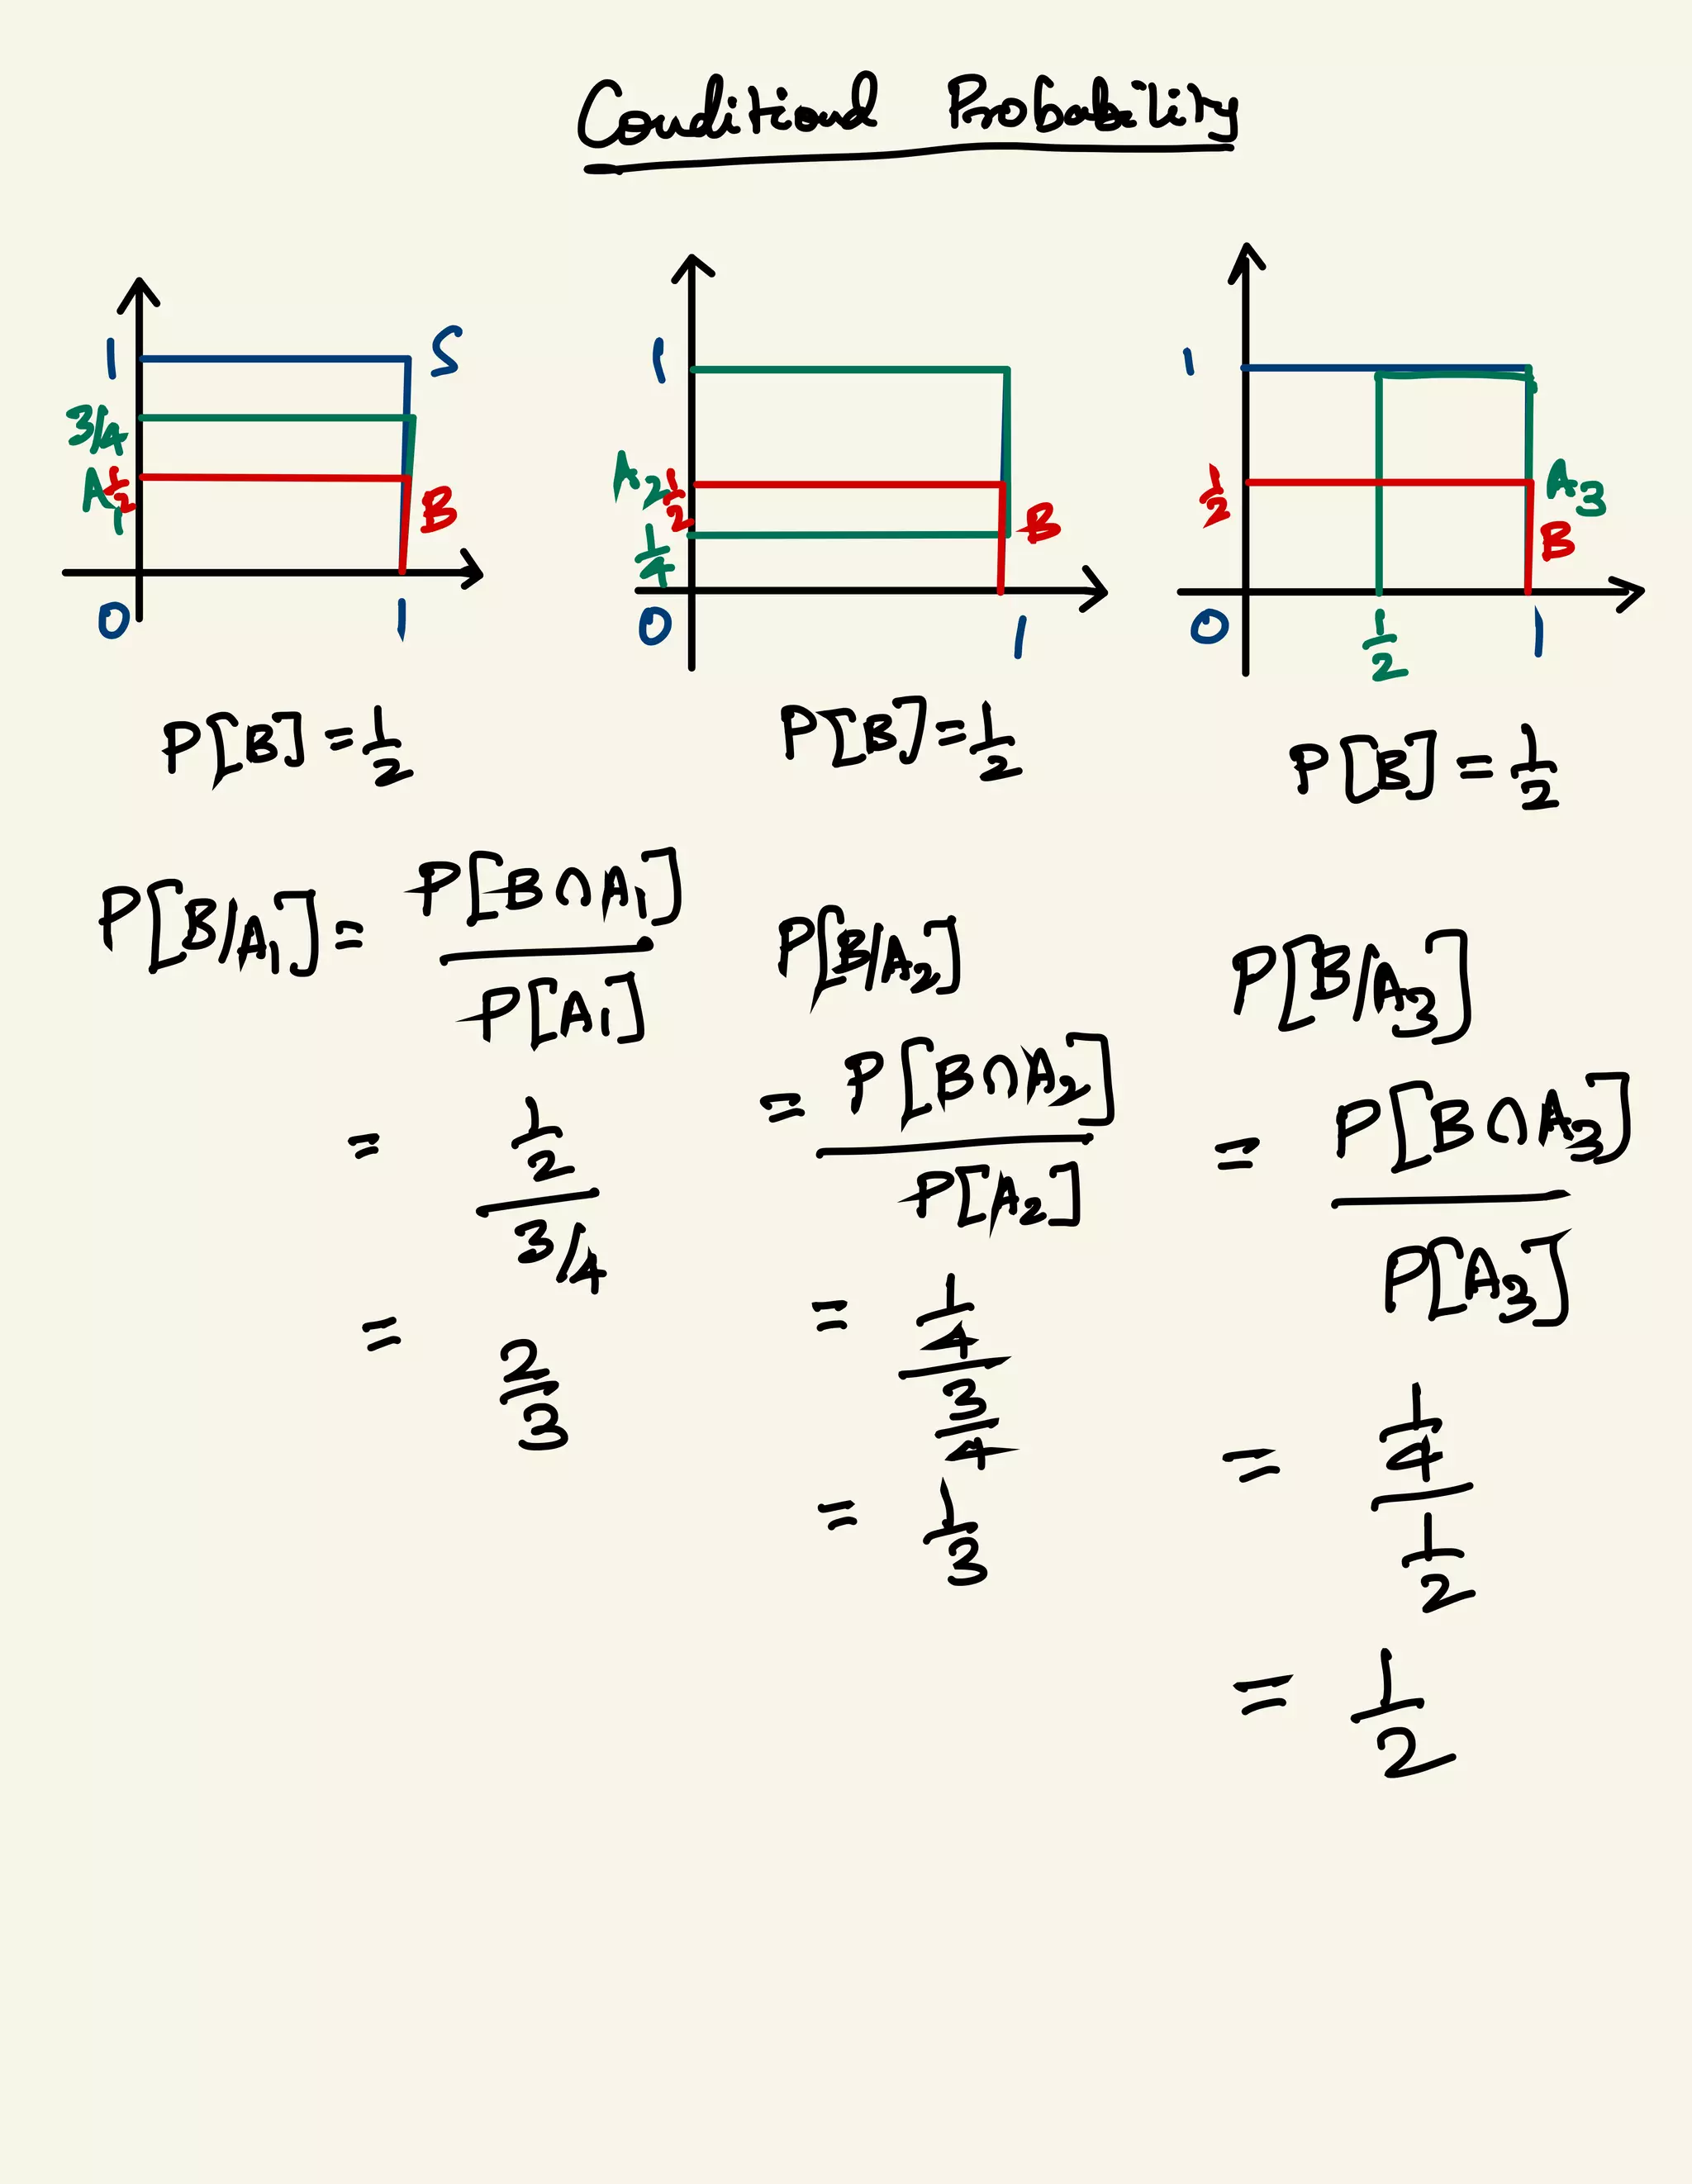 Conditional Probability
1 S
3/4
A1 1/2 B
0 1
1
A2 1/2 B
1/4
0 1
1
1/2 A3
B
0 1/2 1
P[B] = 1/2
P[B/A1] = P[B∩A1] / P[A1]
= 1/2 / 3/4
= 2/3
P[B] = 1/2
P[B/A2]
= P[B∩A2] / P[A2]
= 1/4 / 3/4
= 1/3
P[B] = 1/2
P[B/A3]
= P[B∩A3] / P[A3]
= 1/4 / 1/2
= 1/2